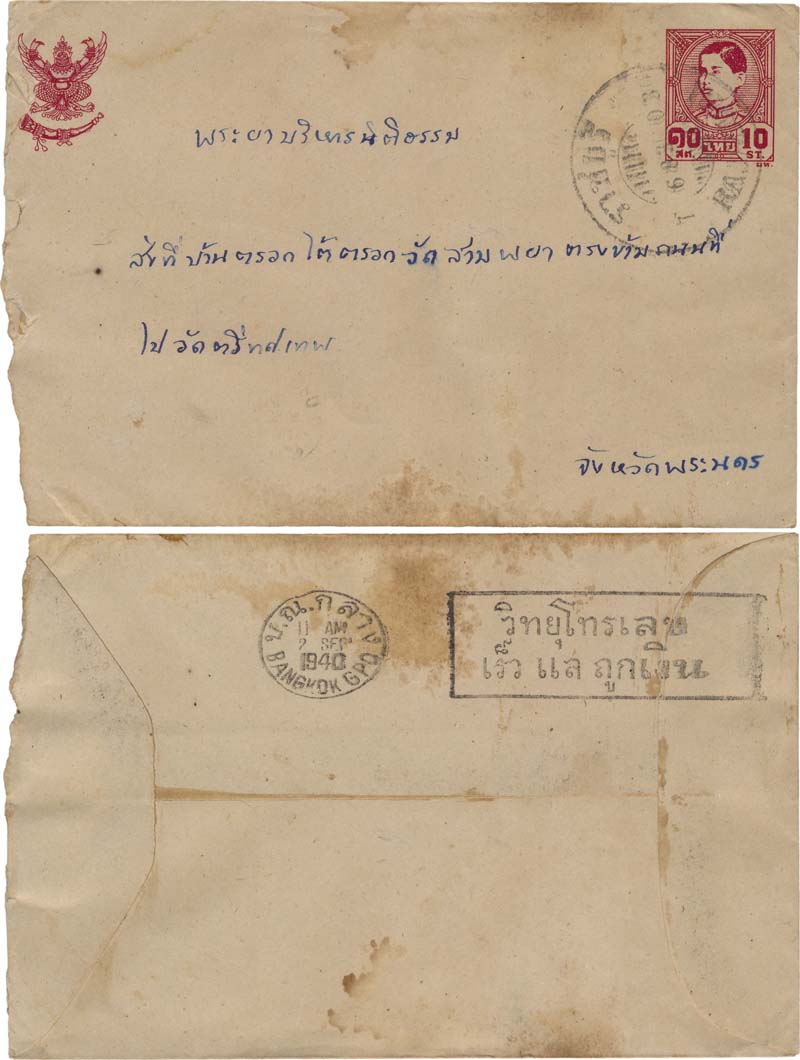 พระยาบริหารนิติธรรม
ส่งที่บ้านตรอกใต้ตรอกวัดสามพยา ตรงข้ามถนนที่
ไปวัดตรีทศเทพ
จังหวัดพระนคร
๑๐ ไทย 10
สต. ST.
ราชบุรี
บ.ณ.กลาง
11 AM
2 SEP
1940
BANGKOK GPO
วิทยุโทรเลข
เร็ว แล ถูกเงิน